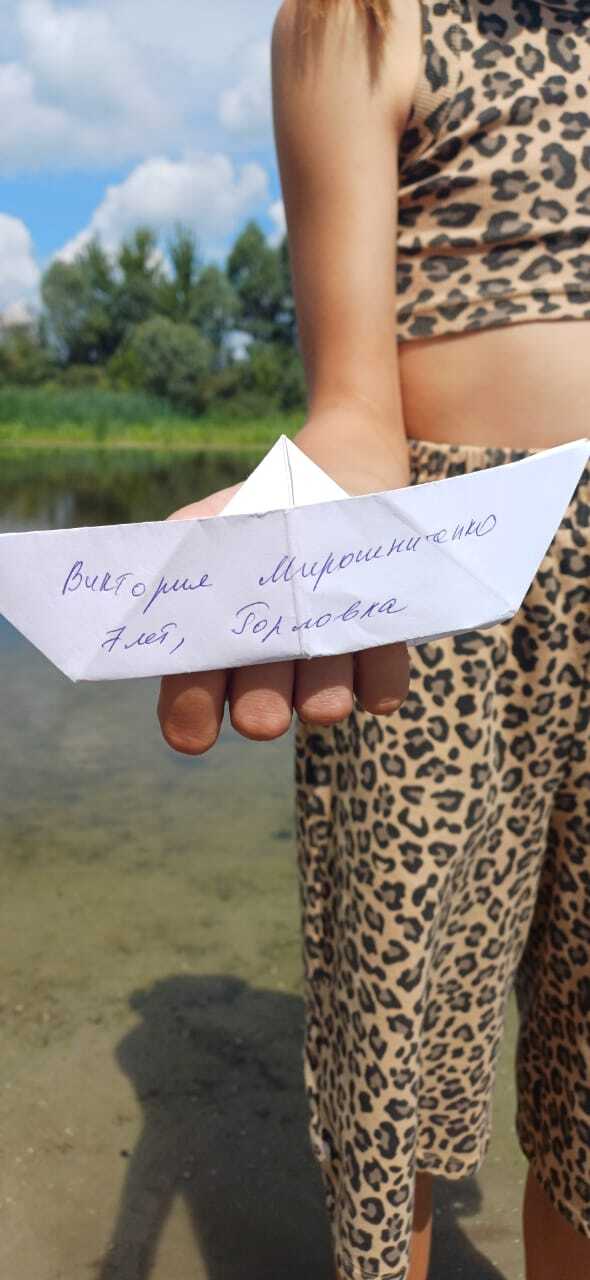 Виктория Мирошниченко
7 лет, Горловка